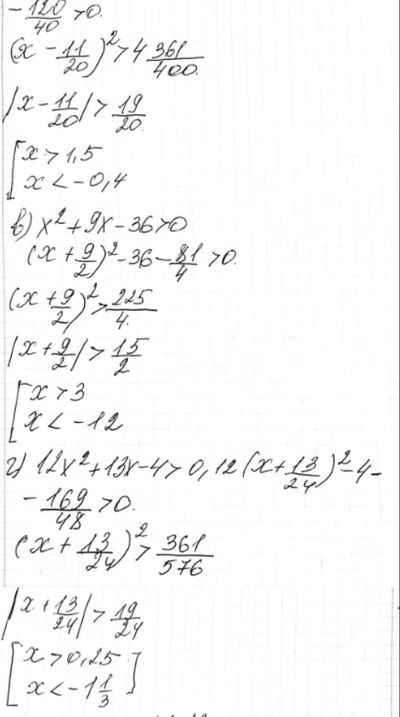 - 120/40 > 0.
(x - 11/20)² > 4 361/400.
|x - 11/20| > 19/20.
[x > 1,5
x < -0,4
в) x² + 9x - 36 > 0
(x + 9/2)² - 36 - 81/4 > 0.
(x + 9/2)² > 225/4.
|x + 9/2| > 15/2
[x > 3
x < -12
г) 12x² + 13x - 4 > 0, 12(x + 13/24)² - 4 -
- 169/48 > 0.
(x + 13/24)² > 361/576
|x + 13/24| > 19/24
[x > 0,25
x < -1 1/3]